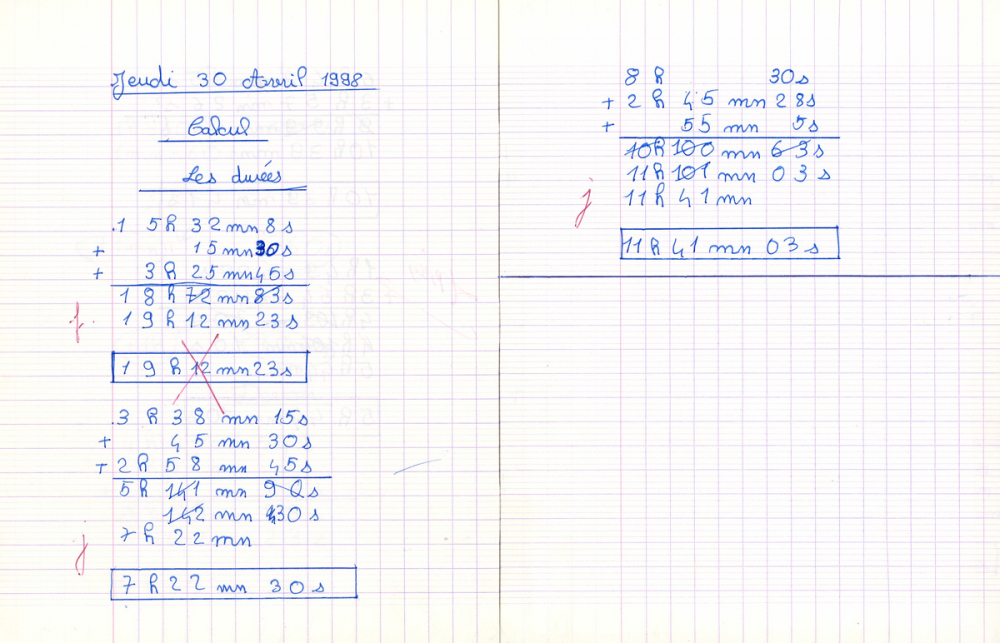 Jeudi 30 Avril 1998
Calcul
Les durées
15h 32mn 8s
+ 15mn 30s
+ 3h 25mn 45s
18h 72mn 83s
19h 12mn 23s
f
19h 12mn 23s
3h 38mn 15s
+ 45mn 30s
+ 2h 58mn 45s
5h 141mn 90s
142mn 30s
7h 22mn
j
7h 22mn 30s
8h 30s
+ 2h 45mn 28s
+ 55mn 5s
10h 100mn 63s
11h 101mn 03s
11h 41mn
j
11h 41mn 03s